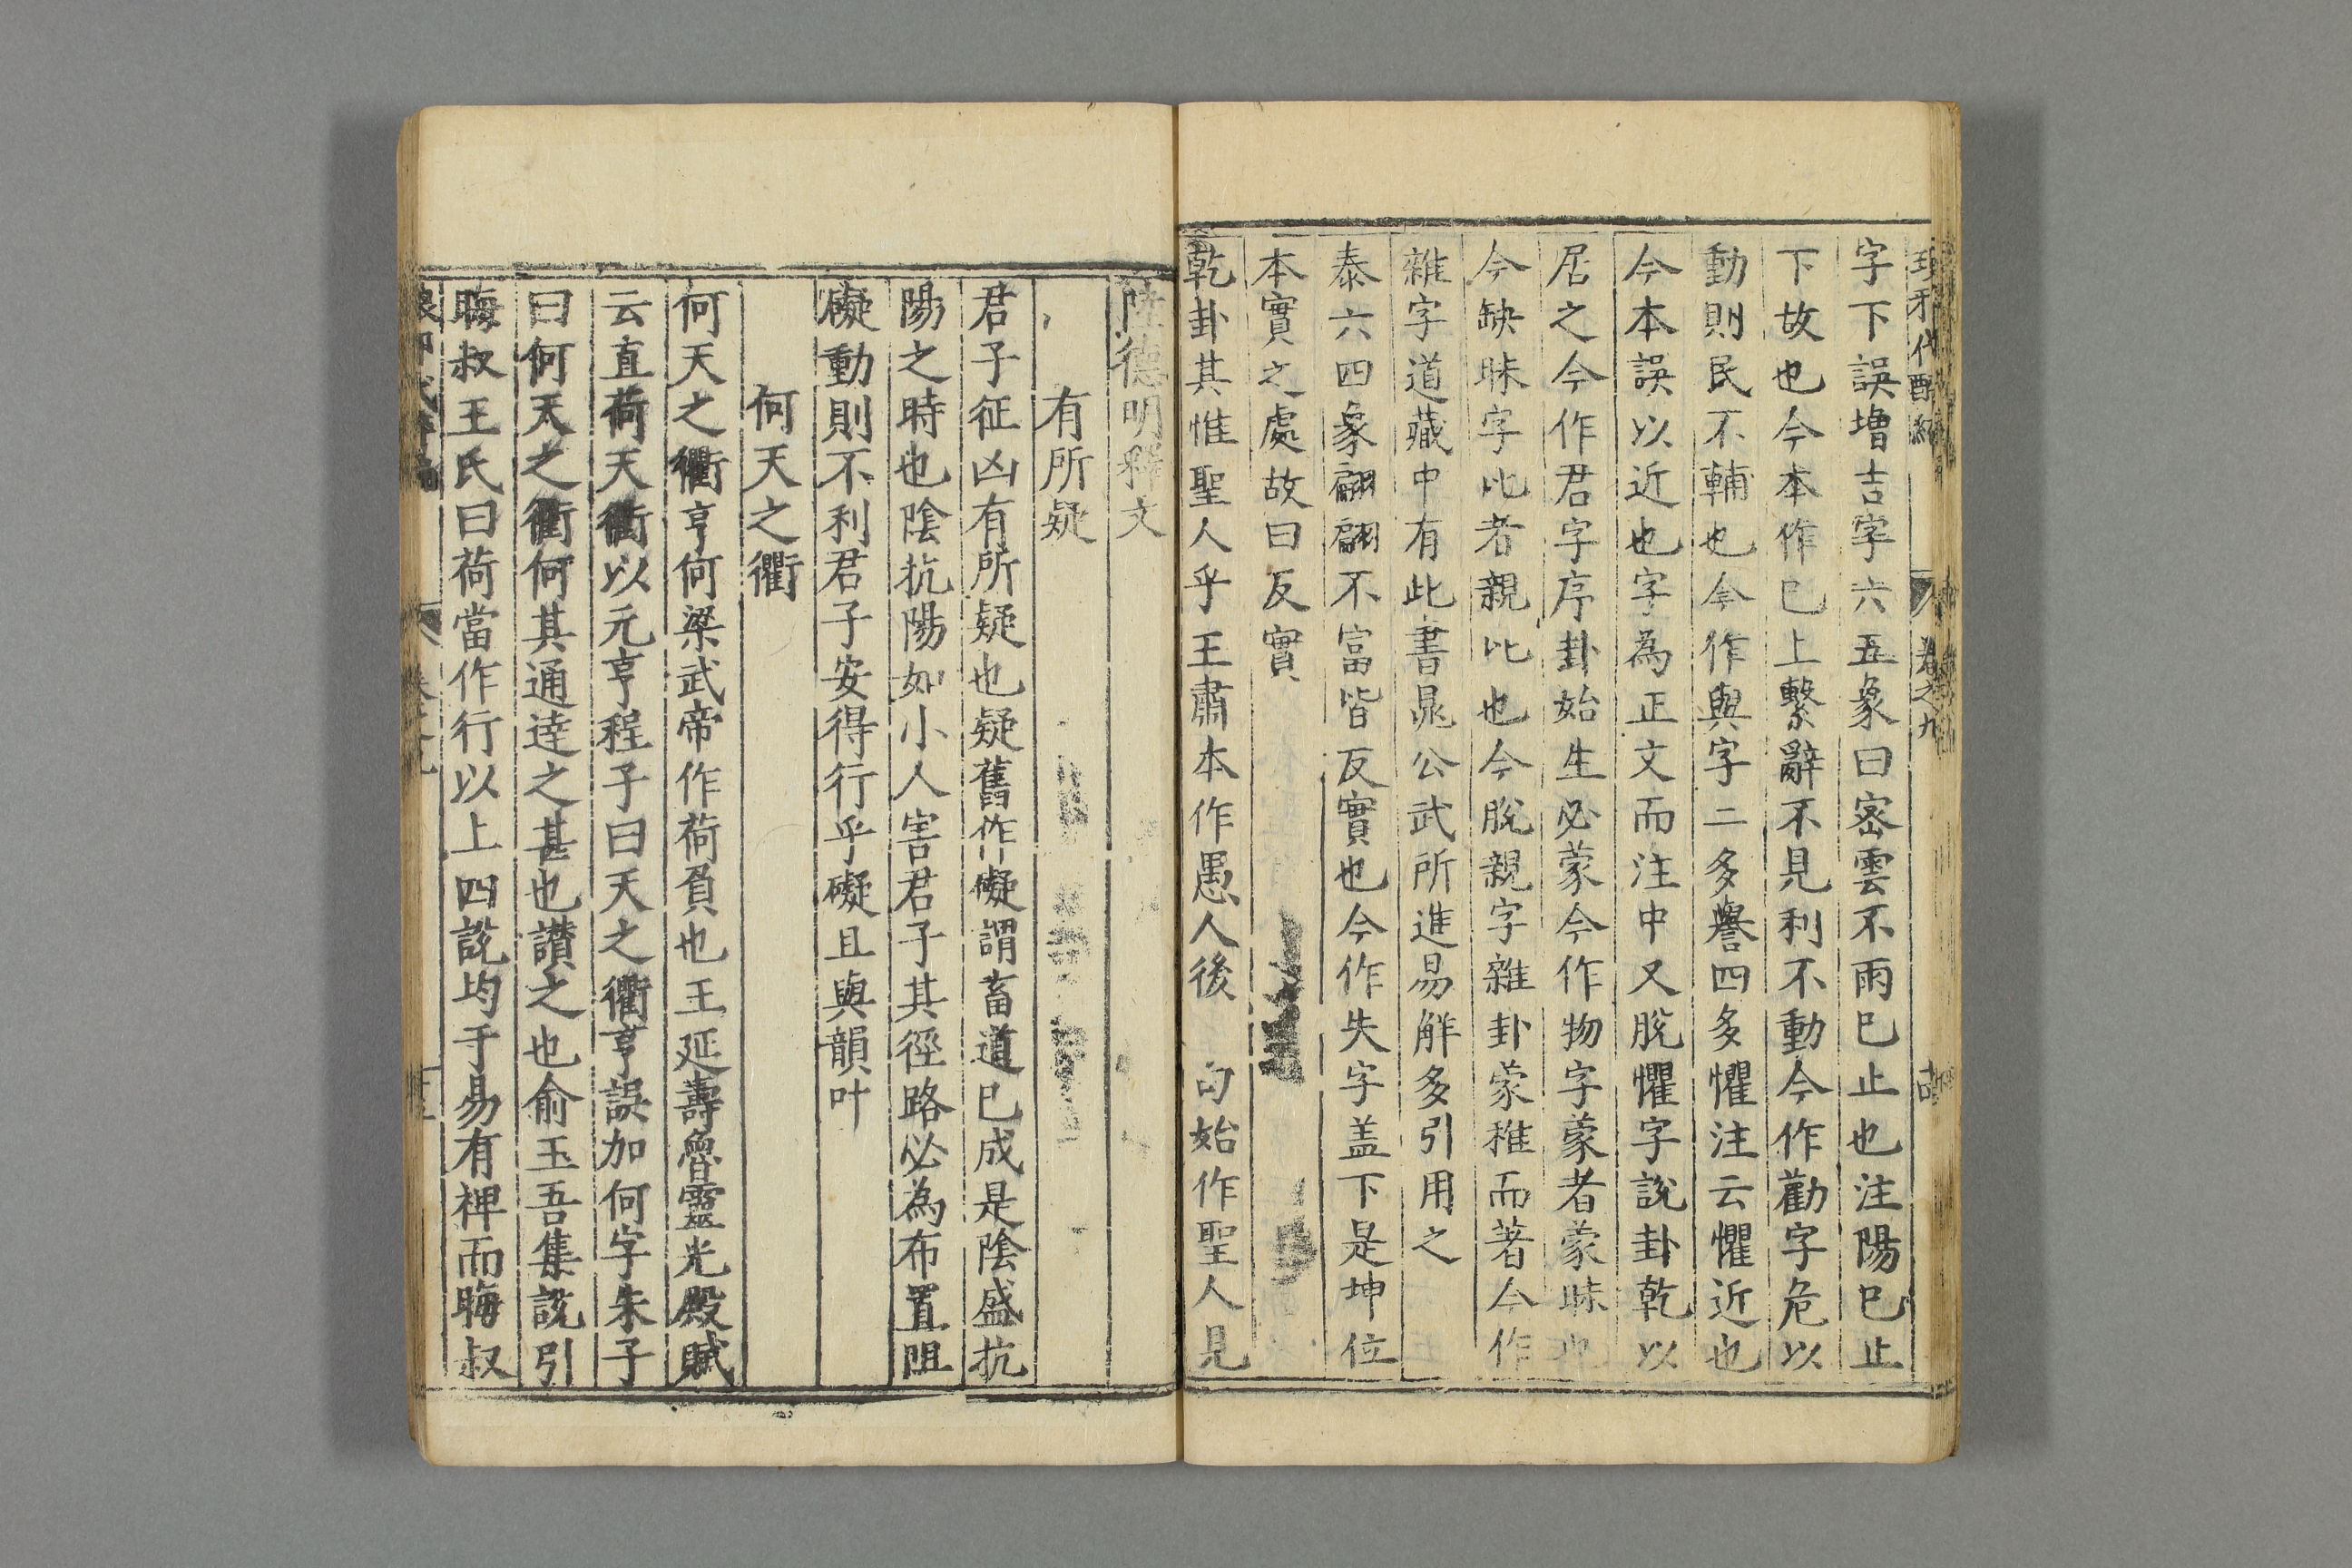 卷之九
字下誤增吉字六五象曰密雲不雨已止也注陽已止
下故也今本作已上繫辭不見利不動今作勸字危以
動則民不輔也今作與字二多譽四多懼注云懼近也
今本誤以近也字為正文而注中又脫懼字說卦乾以
居之今作君字序卦始生必蒙今作物字蒙者蒙昧也
今缺昧字比者親比也今脫親字雜卦蒙稚而著今作
雜字道藏中有此書晁公武所進易解多引用之
泰六四象翩翩不富皆反實也今作失字盖下是坤位
本實之處故曰反實
乾卦其惟聖人乎王肅本作愚人後句始作聖人見
陸德明釋文
有所疑
君子征凶有所疑也疑舊作礙謂畜道已成是陰盛抗
陽之時也陰抗陽如小人害君子其徑路必為布置阻
礙動則不利君子安得行乎礙且與韻叶
何天之衢
何天之衢亨何梁武帝作荷負也王延壽魯靈光殿賦
云直荷天衢以元亨程子曰天之衢亨誤加何字朱子
曰何天之衢何其通達之甚也讚之也俞玉吾集說引
晦叔王氏曰荷當作行以上四說均于易有裨而晦叔